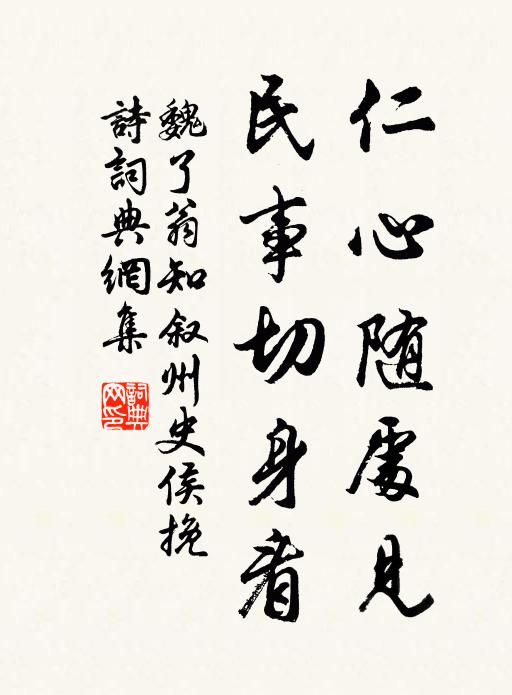 仁心随處见
民事切身看
魏了翁知叙州史侯挽
詩詞典網集
詞典网印